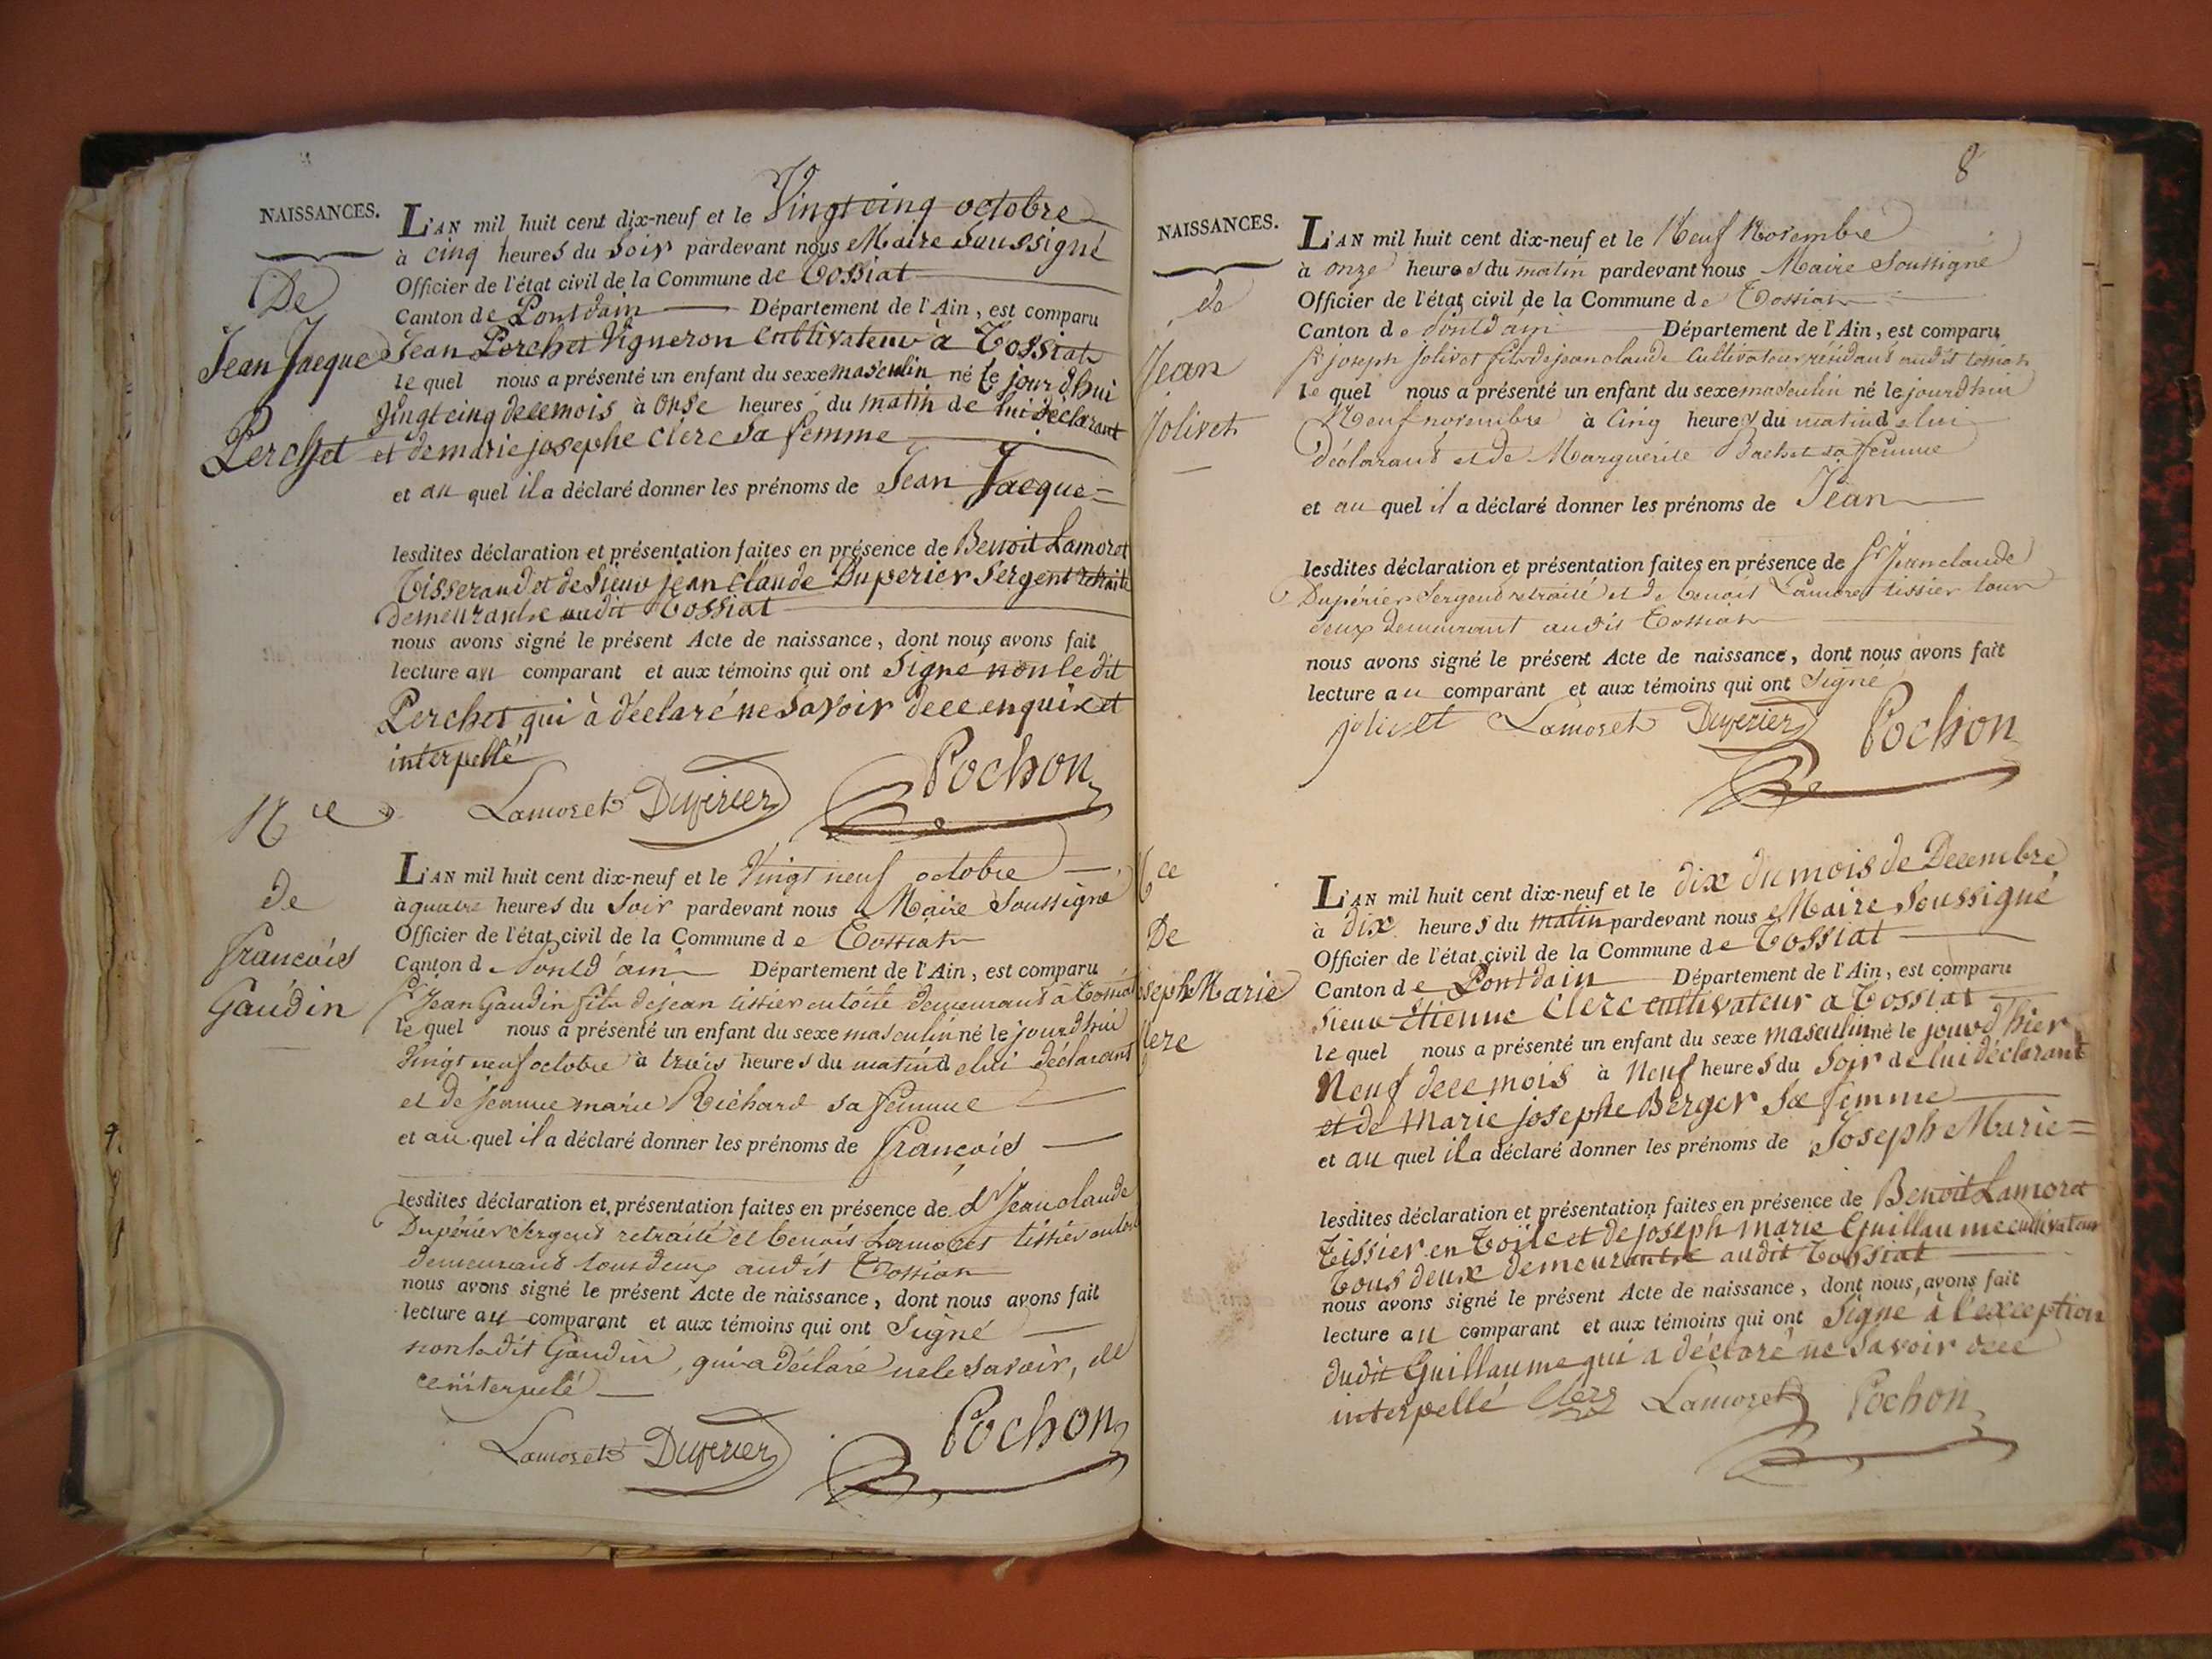 NAISSANCES.
De
Jean Jacque
Perchet
L'AN mil huit cent dix-neuf et le Vingt cinq octobre
à cinq heures du Soir pardevant nous Maire Soussigné
Officier de l'état civil de la Commune de Tossiat
Canton de Pontdain Département de l'Ain, est comparu
Jean Perchet Vigneron Cultivateur à Tossiat
le quel nous a présenté un enfant du sexe masculin né le jourdhui
Vingt cinq de ce mois à Onse heures du matin de lui déclarant
et de marie josephe Clerc Sa femme
et au quel il a déclaré donner les prénoms de Jean Jacque=
lesdites déclaration et présentation faites en présence de Benoit Lamoret
Tisserand et de Sieur jean Claude Duperier Sergent retraité
demeurants audit Tossiat
nous avons signé le présent Acte de naissance, dont nous avons fait
lecture au comparant et aux témoins qui ont Signé non ledit
Perchet qui à déclaré ne Savoir de ce enquis et
interpellé
Lamoret Duperier Pochon
Nce
de
francois
Gaudin
L'AN mil huit cent dix-neuf et le Vingt neuf octobre
à quatre heures du Soir pardevant nous Maire Soussigné
Officier de l'état civil de la Commune de Tossiat
Canton de Pontd'ain Département de l'Ain, est comparu
Sr Jean Gaudin fils de jean tissier en toile demeurant à Tossiat
le quel nous a présenté un enfant du sexe masculin né le jourdhui
Vingt neuf octobre à trois heures du matin de lui déclarant
et de jeanne marie Richard sa femme
et au quel il a déclaré donner les prénoms de francois
lesdites déclaration et présentation faites en présence de Sr Jean claude
Dupérier Sergent retraité et benoit Lamoret tissier en toile
demeurant tous deux audit Tossiat
nous avons signé le présent Acte de naissance, dont nous avons fait
lecture au comparant et aux témoins qui ont Signé
non ledit Gaudin, qui a déclaré ne le savoir, de
ce interpelé
Lamoret Duperier Pochon
8
NAISSANCES.
de
Jean
Jolivet
L'AN mil huit cent dix-neuf et le Neuf Novembre
à onze heures du matin pardevant nous Maire Soussigné
Officier de l'état civil de la Commune de Tossiat
Canton de Pontd'ain Département de l'Ain, est comparu
Sr joseph jolivet fils de jean claude Cultivateur résidant audit tossiat
le quel nous a présenté un enfant du sexe masculin né le jourdhui
Neuf novembre à Cinq heures du matin de lui
déclarant et de Marguerite Bachet sa femme
et au quel il a déclaré donner les prénoms de Jean
lesdites déclaration et présentation faites en présence de Sr Jean claude
Dupérier Sergent retraité et de benoit Lamoret tissier tous
deux demeurant audit Tossiat
nous avons signé le présent Acte de naissance, dont nous avons fait
lecture au comparant et aux témoins qui ont Signé
jolivet Lamoret Duperier Pochon
ce
De
seph Marie
lerc
L'AN mil huit cent dix-neuf et le dix du mois de Decembre
à dix heures du matin pardevant nous Maire Soussigné
Officier de l'état civil de la Commune de Tossiat
Canton de Pontdain Département de l'Ain, est comparu
Sieur Etienne Clerc cultivateur a Tossiat
le quel nous a présenté un enfant du sexe masculin né le jour d'hier
Neuf de ce mois à Neuf heures du Soir de lui déclarant
et de Marie josephe Berger Sa femme
et au quel il a déclaré donner les prénoms de Joseph Marie=
lesdites déclaration et présentation faites en présence de Benoit Lamoret
Tissier en Toile et de joseph marie Guillaume cultivateur
Tous deux demeurants audit Tossiat
nous avons signé le présent Acte de naissance, dont nous avons fait
lecture au comparant et aux témoins qui ont Signé à l'exception
dudit Guillaume qui a déclaré ne Savoir de ce
interpellé Clerc Lamoret Pochon